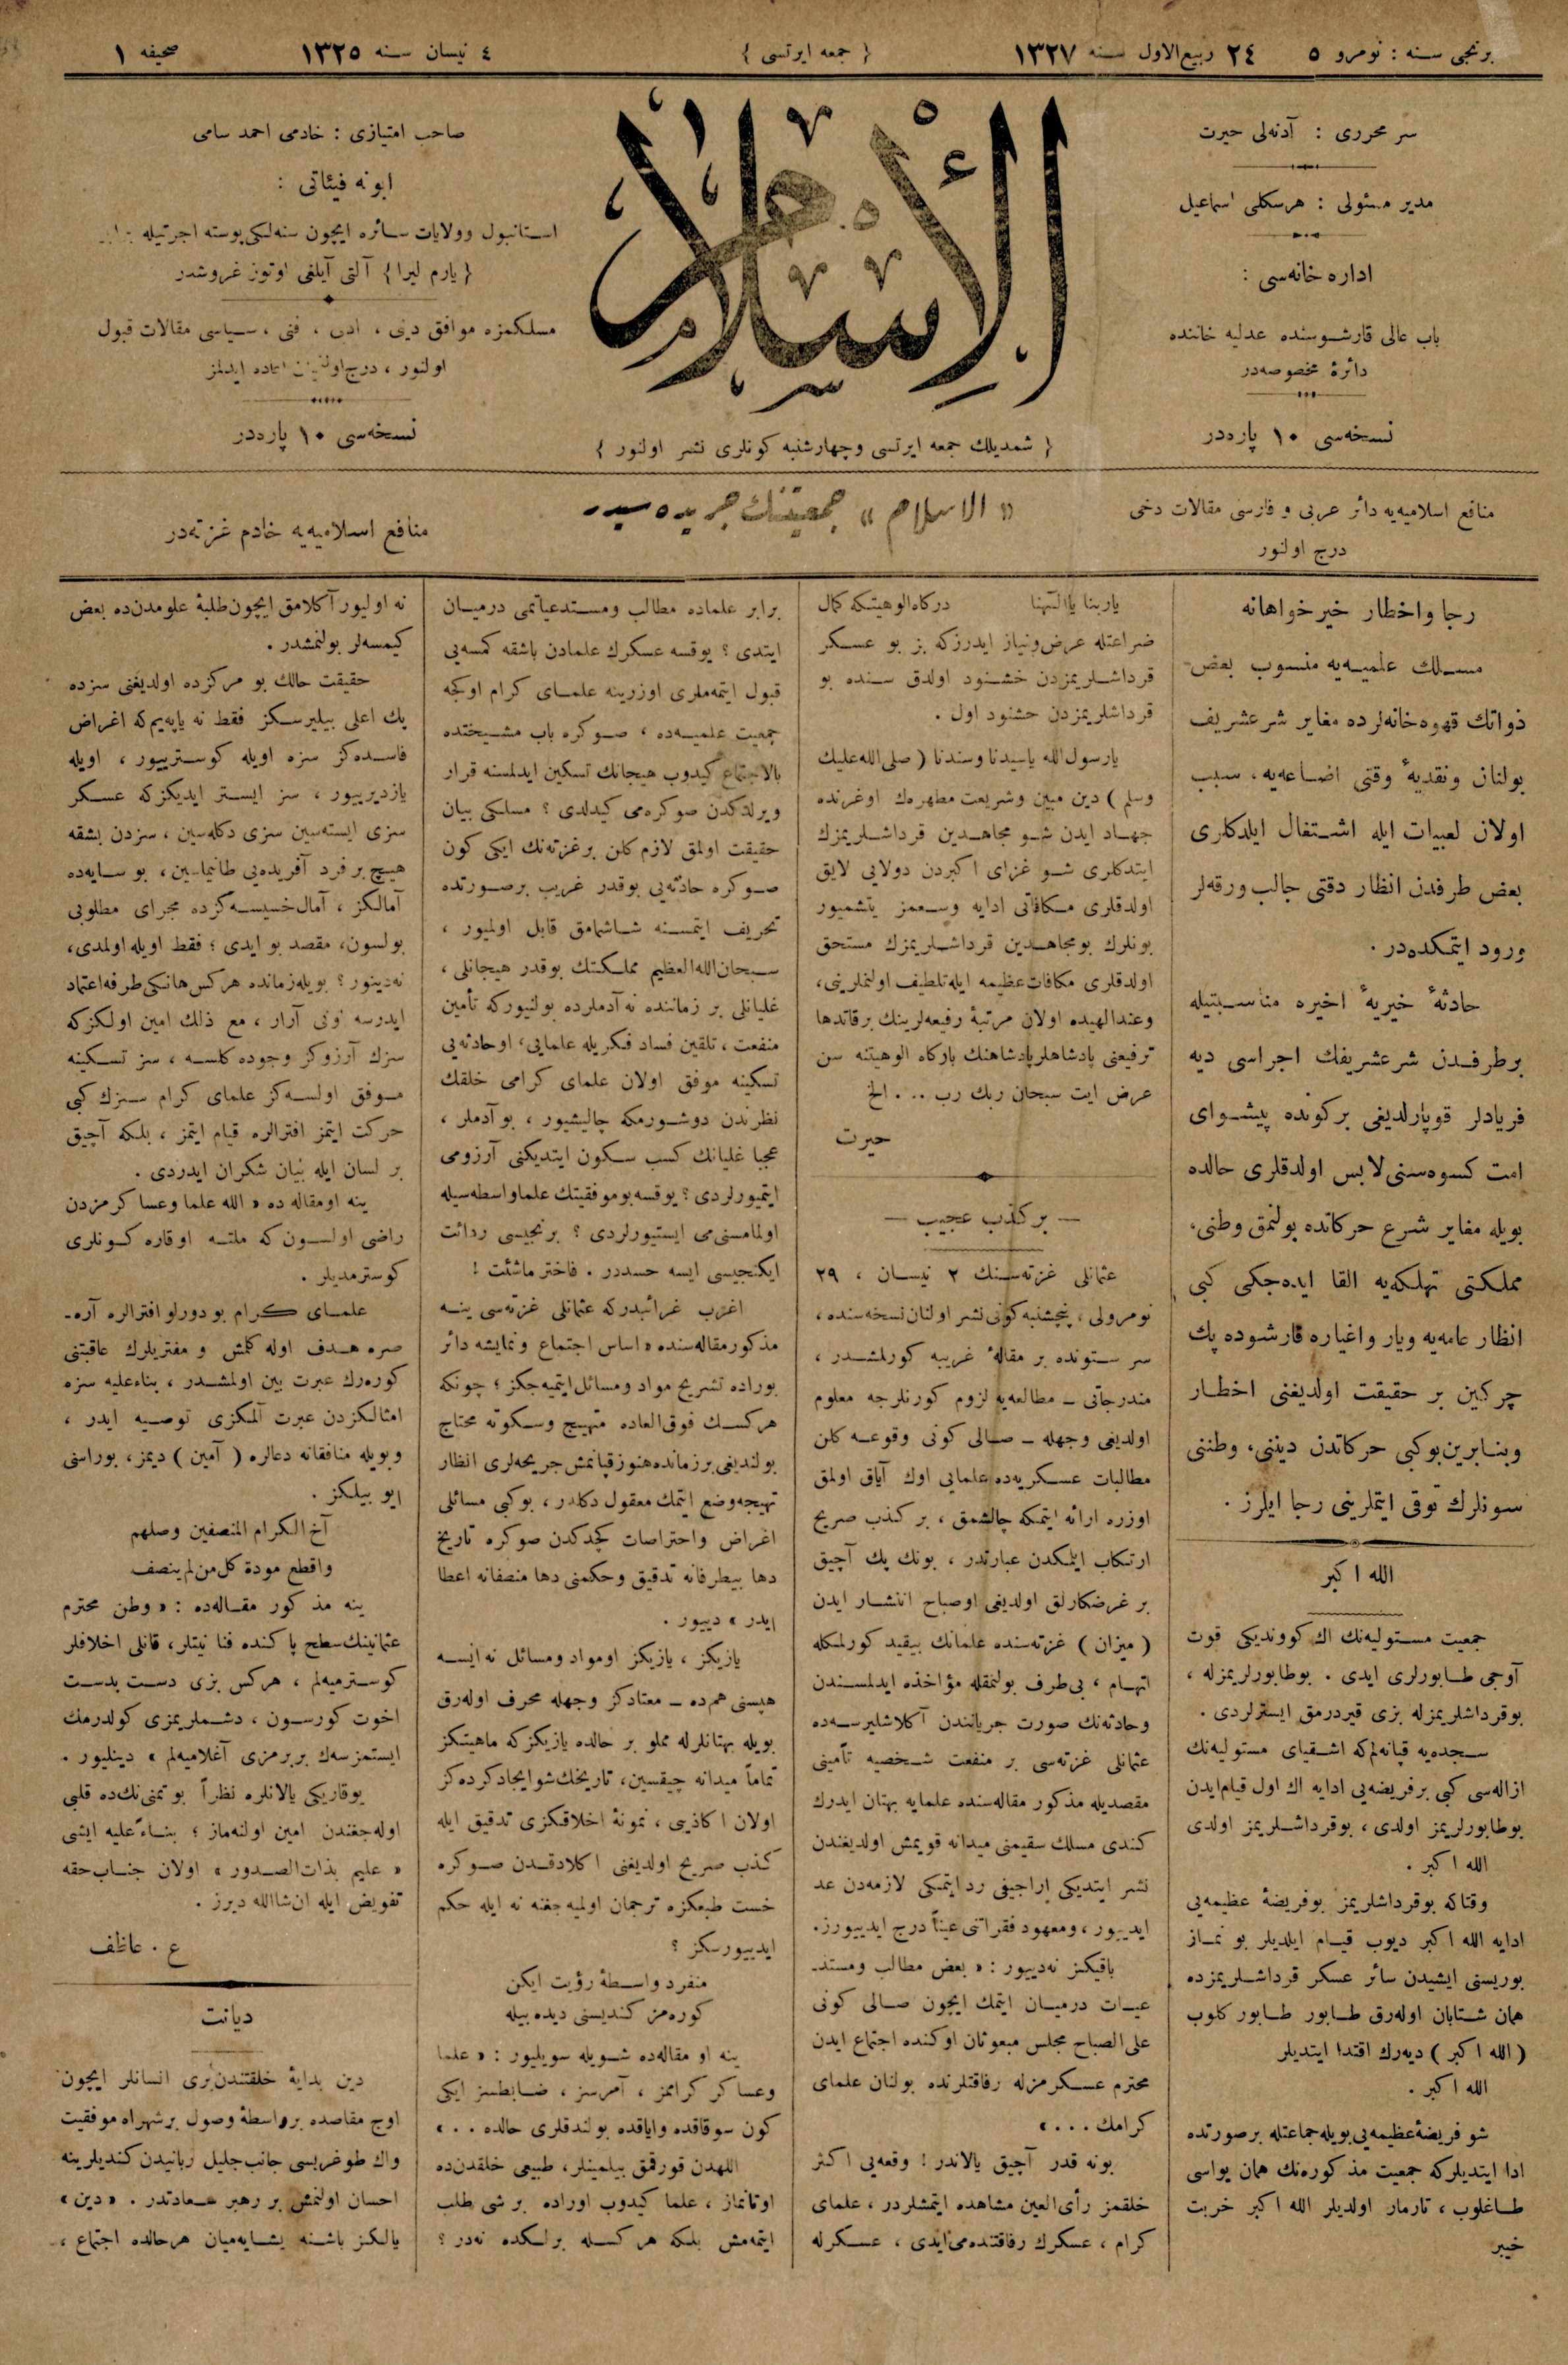 برنجی سنه : نومرو ٥
٢٤ ربیع‌الاول سنه ١٣٢٧
{ جمعه ایرتسی }
٤ نیسان سنه ١٣٢٥
صحیفه ١
سر محرری : آدنه‌لی حیرت
مدیر مسئولی : هرسکلی اسماعیل
اداره خانه‌سی :
باب عالی قارشوسنده عدلیه خاننده
دائرهٔ مخصوصه‌در
نسخه‌سی ١٠ پاره‌در
الإسلام
{ شمدیلك جمعه ایرتسی وچهارشنبه كونلری نشر اولنور }
صاحب امتیازی : خادمی احمد سامی
ابونه فیئاتی :
استانبول وولایات سائره ایچون سنه‌لكی پوسته اجرتیله
{ یارم لیرا } آلتی آیلغی اوتوز غروشدر
مسلكمزه موافق دینی ، ادبی ، فنی ، سیاسی مقالات قبول
اولنور ، درج اعاده ایدلمز
نسخه‌سی ١٠ پاره‌در
منافع اسلامیه‌یه دائر عربی و فارسی مقالات دخی
درج اولنور
« الاسلام » جمعیتنك جریده سیدر
منافع اسلامیه‌یه خادم غزته‌در
رجا واخطار خیرخواهانه
مسلك علمیه‌یه منسوب بعض
ذواتك قهوه‌خانه‌لرده مغایر شرعشریف
بولنان ونقدیهٔ وقتی اضاعه‌یه ، سبب
اولان لعبیات ایله اشتغال ایلدكلری
بعض طرفدن انظار دقتی جالب ورقه‌لر
ورود ایتمكده‌در .
حادثهٔ خیریهٔ اخیره مناسبتیله
برطرفدن شرعشریفك اجراسی دیه
فریادلر قوپارلدیغی بركونده پیشوای
امت كسوه‌سنی لابس اولدقلری حالده
بویله مغایر شرع حركاتده بولنمق وطنی ،
مملكتی تهلكه‌یه القا ایده‌جكی كبی
انظار عامه‌یه ویار واغیاره قارشوده پك
چركین بر حقیقت اولدیغنی اخطار
وبنابرین بوكبی حركاتدن دیننی ، وطننی
سونلرك توقی ایتملرینی رجا ایلرز .
الله اكبر
جمعیت مستولیه‌نك اك كووندیكی قوت
آوجی طابورلری ایدی . بوطابورلریمزله ،
بوقرداشلریمزله بزی قیردرمق ایسترلردی .
سجده‌یه قپانه‌لم‌كه اشقیای مستولیه‌نك
ازاله‌سی كبی برفریضه‌یی ادایه اك اول قیام‌ایدن
بوطابورلریمز اولدی ، بوقرداشلریمز اولدی
الله اكبر .
وقتاكه بوقرداشلریمز بوفریضهٔ عظیمه‌یی
ادایه الله اكبر دیوب قیام ایلدیلر بو نماز
بوریسنی ایشیدن سائر عسكر قرداشلریمزده
همان شتابان اوله‌رق طابور طابور كلوب
( الله اكبر ) دیه‌رك اقتدا ایتدیلر
الله اكبر .
شو فریضهٔ عظیمه‌یی بویله جماعتله برصورتده
ادا ایتدیلركه جمعیت مذكوره‌نك همان یواسی
طاغلوب ، تارمار اولدیلر الله اكبر خربت
خیبر
یاربنا یاالٓهنا دركاه‌الوهیتكه كمال
ضراعتله عرض‌ونیاز ایدرزكه بز بو عسكر
قرداشلریمزدن خشنود اولدق سنده بو
قرداشلریمزدن خشنود اول .
یارسول‌الله یاسیدنا وسندنا ( صلی‌الله‌علیك
وسلم ) دین مبین وشریعت مطهره‌ك اوغرنده
جهاد ایدن شو مجاهدین قرداشلریمزك
ایتدكلری شو غزای اكبردن دولایی لایق
اولدقلری مكافاتی ادایه وسعمز یتشمیور
بونلرك بومجاهدین قرداشلریمزك مستحق
اولدقلری مكافات عظیمه ایله تلطیف اولنملرینی،
وعندالهیده اولان مرتبهٔ رفیعه‌لرینك برقاتدها
ترفیعنی پادشاهلرپادشاهنك باركاه الوهیتنه سن
عرض ایت سبحان ربك رب ... الخ
حیرت
— بر كذب عجیب —
عثمانلی غزته‌سنك ٢ نیسان ، ٢٩
نومرولی ، پنجشنبه كونی نشر اولنان نسخه‌سنده ،
سر ستونده بر مقالهٔ غریبه كورلمشدر ،
مندرجاتی ـ مطالعه‌یه لزوم كورنلرجه معلوم
اولدیغی وجهله ـ صالی كونی وقوعه كلن
مطالبات عسكریه‌ده علمایی اوك آیاق اولمق
اوزره ارائه ایتمكه چالشمق ، بر كذب صریح
ارتكاب ایلمكدن عبارتدر ، بونك پك آچیق
بر غرضكارلق اولدیغی اوصباح انتشار ایدن
( میزان ) غزته‌سنده علمانك بیقید كورلمكله
اتهام ، بی‌طرف بولنمقله مؤاخذه ایدلمسندن
وحادثه‌نك صورت جریانندن آكلاشلیرسه‌ده
عثمانلی غزته‌سی بر منفعت شخصیه تأمینی
مقصدیله مذكور مقاله‌سنده علمایه بهتان ایدرك
كندی مسلك سقیمنی میدانه قویمش اولدیغندن
نشر ایتدیكی اراجیفی رد ایتمكی لازمه‌دن عد
ایدییور ، ومعهود فقراتنی عیناً درج ایدییورز.
باقیكز نه‌دییور : « بعض مطالب ومستد-
عیات درمیان ایتمك ایچون صالی كونی
علی‌الصباح مجلس مبعوثان اوكنده اجتماع ایدن
محترم عسكرمزله رفاقتلرنده بولنان علمای
كرامك ... »
بونه قدر آچیق یالاندر ! وقعه‌یی اكثر
خلقمز رأی‌العین مشاهده ایتمشلردر ، علمای
كرام ، عسكرك رفاقتنده‌می‌ایدی ، عسكرله
برابر علماده مطالب ومستدعیاتمی درمیان
ایتدی ؟ یوقسه عسكرك علمادن باشقه كمسه‌یی
قبول ایتمه‌ملری اوزرینه علمای كرام اوكجه
جمعیت علمیه‌ده ، صوكره باب مشیختده
بالاجتماع كیدوب هیجانك تسكین ایدلمسنه قرار
ویرلدكدن صوكره‌می كیدلدی ؟ مسلكی بیان
حقیقت اولمق لازم كلن برغزته‌نك ایكی كون
صوكره حادثه‌یی بوقدر غریب برصورتده
تحریف ایتمسنه شاشمامق قابل اولمیور ،
سبحان‌الله‌العظیم مملكتك بوقدر هیجانلی ،
غلیانلی بر زماننده نه آدملرده بولنیوركه تأمین
منفعت ، تلقین فساد فكریله علمایی ، اوحادثه‌یی
تسكینه موفق اولان علمای كرامی خلقك
نظرندن دوشورمكه چالیشیور ، بو آدملر ،
عجبا غلیانك كسب سكون ایتدیكنی آرزومی
ایتمیورلردی ؟ یوقسه بوموفقیتك علماواسطه‌سیله
اولمامسنی‌می ایستیورلردی ؟ برنجیسی ردائت
ایكنجیسی ایسه حسددر . فاختر ماشئت !
اغرب غرائبدركه عثمانلی غزته‌سی ینه
مذكور مقاله‌سنده « اساس اجتماع ونمایشه دائر
بوراده تشریح مواد ومسائل ایتمیه‌جكز ؛ چونكه
هركسك فوق‌العاده متهییج وسكوته محتاج
بولندیغی برزمانده هنوز قپانمش جریحه‌لری انظار
تهییجه وضع ایتمك معقول دكلدر ، بوكبی مسائلی
اغراض واحتراصات كچدكدن صوكره تاریخ
دها بیطرفانه تدقیق وحكمنی دها منصفانه اعطا
ایدر » دییور .
یازیكز ، یازیكز اومواد ومسائل نه‌ایسه
هپسنی هم‌ده ـ معتادكز وجهله محرف اوله‌رق
بویله بهتانلرله مملو بر حالده یازیكزكه ماهیتكز
تماماً میدانه چیقسین ، تاریخك شوایجادكرده‌كز
اولان اكاذیبی ، نمونهٔ اخلاقكزی تدقیق ایله
كذب صریح اولدیغنی اكلادقدن صوكره
خست طبعكزه ترجمان اولمیه‌جغنه نه ایله حكم
ایدییورسكز ؟
منفرد واسطهٔ رؤیت ایكن
كوره‌من كندیسنی دیده بیله
ینه او مقاله‌ده شویله سویلیور : « علما
وعساكر كراممز ، آمرسز ، ضابطسز ایكی
كون سوقاقده وایاقده بولندقلری حالده .. »
اللهدن قورقمق بیلمینلر ، طبیعی خلقدن‌ده
اوتانماز ، علما كیدوب اوراده بر شی طلب
ایتمه‌مش بلكه هر كسله برلكده نه‌در ؟
نه اولیور آكلامق ایچون طلبهٔ علومدن‌ده بعض
كیمسه‌لر بولنمشدر .
حقیقت حالك بو مركزده اولدیغنی سزده
پك اعلی بیلیرسكز فقط نه یاپه‌یم‌كه اغراض
فاسده‌كز سزه اویله كوسترییور ، اویله
یازدیرییور ، سز ایستر ایدیكزكه عسكر
سزی ایسته‌سین سزی دكله‌سین ، سزدن بشقه
هیچ بر فرد آفریده‌یی طانیماسین ، بو سایه‌ده
آمالكز ، آمال‌خسیسه‌كزده مجرای مطلوبی
بولسون، مقصد بو ایدی ؛ فقط اویله اولمدی،
نه‌دینور ؟ بویله‌زمانده هركس هانكی طرفه‌اعتماد
ایدرسه اونی آرار ، مع ذلك امین اولكزكه
سزك آرزوكز وجوده كلسه ، سز تسكینه
موفق اولسه‌كز علمای كرام سزك كبی
حركت ایتمز افترالره قیام ایتمز ، بلكه آچیق
بر لسان ایله بیان شكران ایدردی .
ینه اومقاله ده « الله علما وعساكرمزدن
راضی اولسون كه ملته اوقاره كونلری
كوسترمدیلر .
علمای كرام بو دورلو افترالره آره-
صره هدف اوله كلمش و مفتریلرك عاقبتنی
كوره‌رك عبرت بین اولمشدر ، بناءعلیه سزه
امثالكزدن عبرت آلمكزی توصیه ایدر ،
وبویله منافقانه دعالره ( آمین ) دیمز ، بوراسنی
ایو بیلكز .
آخ الكرام المنصفین وصلهم
واقطع مودة كل‌من‌لم‌ینصف
ینه مذكور مقاله‌ده : « وطن محترم
عثمانینك سطح پاكنده فنا نیتلر، قانلی اخلافلر
كوسترمیه‌لم ، هركس بزی دست بدست
اخوت كورسون ، دشمنلریمزی كولدرمك
ایستمزسه‌ك بربرمزی آغلامیه‌لم » دینلیور .
یوقاریكی یالانلره نظراً بو تمنی‌نك‌ده قلبی
اوله‌جغندن امین اولنه‌ماز ؛ بناءً علیه ایشی
« علیم بذات‌الصدور » اولان جناب‌حقه
تفویض ایله ان‌شاالله دیرز .
ع . عاطف
دیانت
دین بدایهٔ خلقتندن‌بری انسانلر ایچون
اوج مقاصده برواسطهٔ وصول برشهراه موفقیت
واك طوغریسی جانب جلیل ربانیدن كندیلرینه
احسان اولنمش بر رهبر سعادتدر . « دین »
یالكز باشنه یشایه‌میان هرحالده اجتماع ،